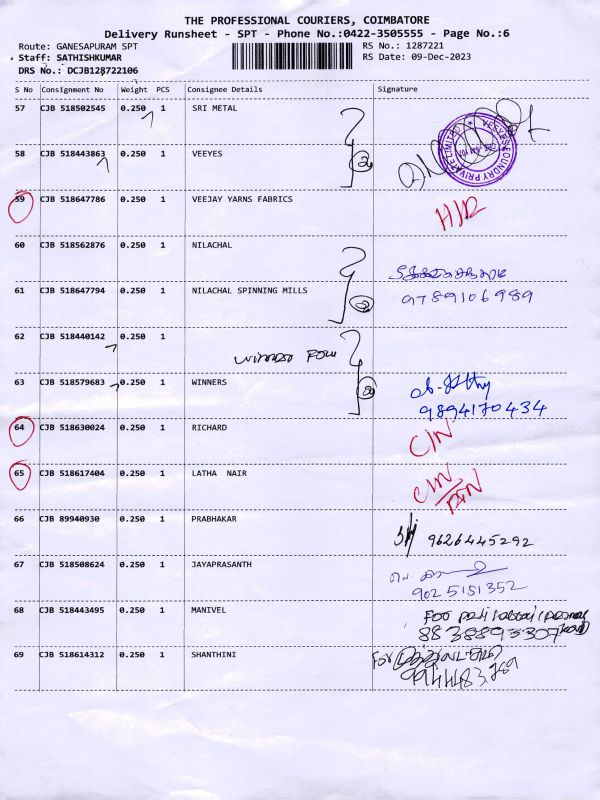 THE PROFESSIONAL COURIERS, COIMBATORE
Delivery Runsheet - SPT - Phone No.:0422-3505555 - Page No.:6
Route: GANESAPURAM SPT
RS No.: 1287221
Staff: SATHISHKUMAR
RS Date: 09-Dec-2023
DRS No.: DCJB128722106
S No Consignment No Weight PCS Consignee Details Signature
57 CJB 518502545 0.250 1 SRI METAL
58 CJB 518443863 0.250 1 VEEYES 2
VEEYES FOUNDRY PRIVATE LIMITED
59 CJB 518647786 0.250 1 VEEJAY YARNS FABRICS
60 CJB 518562876 0.250 1 NILACHAL
61 CJB 518647794 0.250 1 NILACHAL SPINNING MILLS 2 9789106989
62 CJB 518440142 0.250 1
63 CJB 518579683 0.250 1 WINNERS 2
9894170434
64 CJB 518630024 0.250 1 RICHARD CIN
65 CJB 518617404 0.250 1 LATHA NAIR CIN
66 CJB 89940930 0.250 1 PRABHAKAR 9626445292
67 CJB 518508624 0.250 1 JAYAPRASANTH
9025151352
68 CJB 518443495 0.250 1 MANIVEL For
8838893307
69 CJB 518614312 0.250 1 SHANTHINI For
9944483289